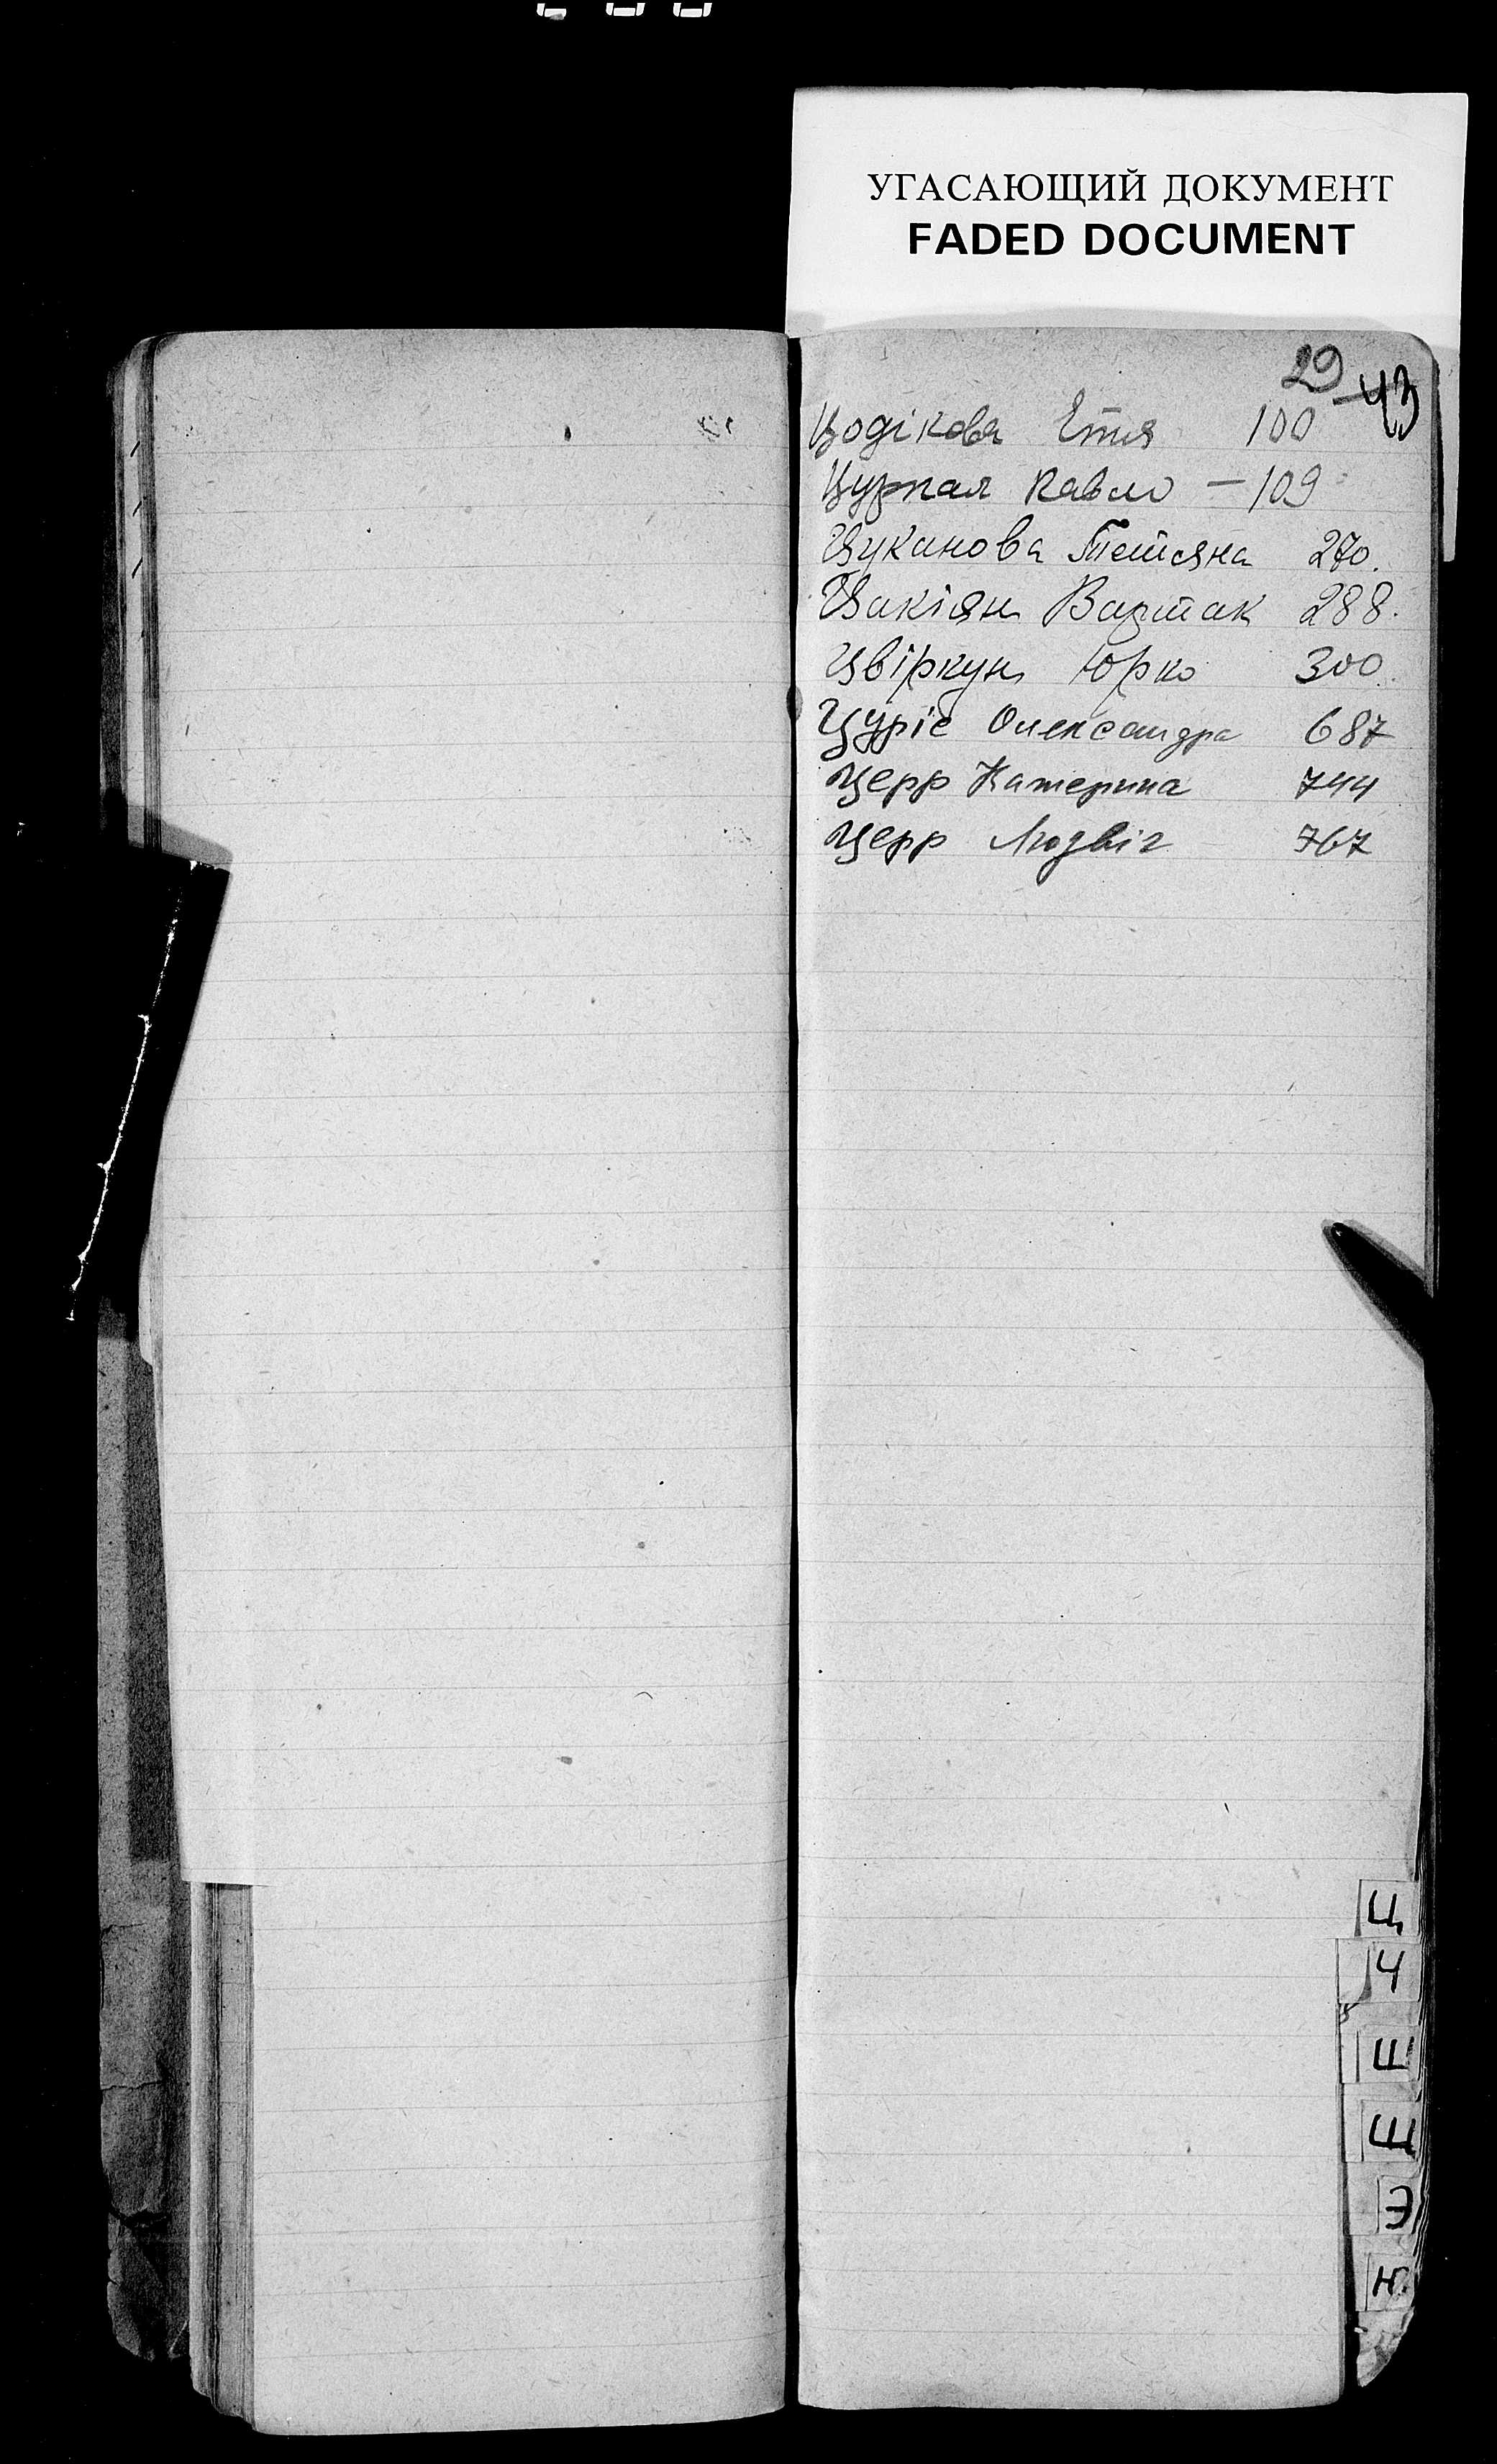 УГАСАЮЩИЙ ДОКУМЕНТ
FADED DOCUMENT
29
43
Цодікова Етя 100
Цуркал Павло — 109
Цуканова Тетяна 270.
Цакіян Вартак 288.
Цвіркун Юрко 300
Цуріс Олександра 687
Церр Катерина 744
Церр Людвіг 767
Ц
Ч
Ш
Щ
Э
Ю